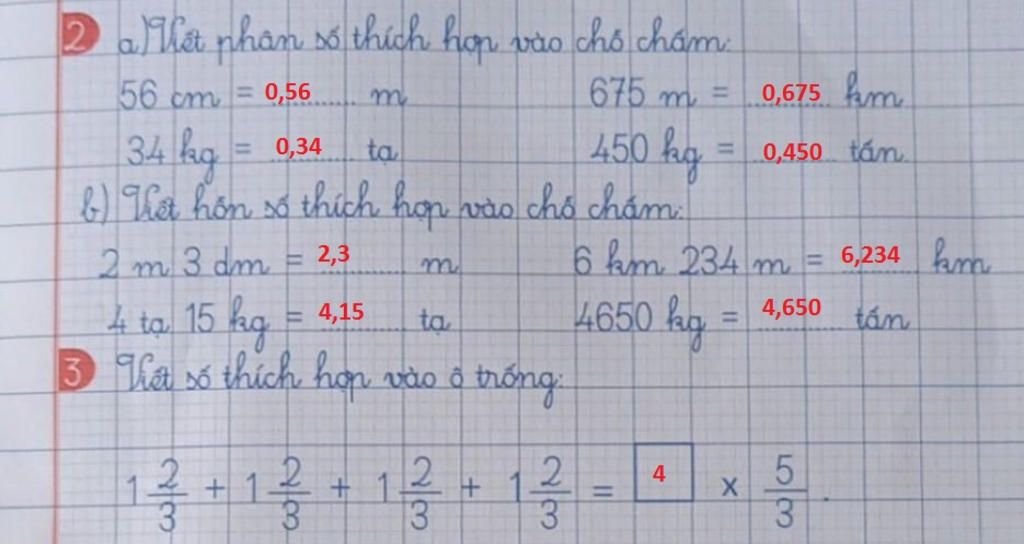 2 a) Viết phân số thích hợp vào chỗ chấm:
56 cm = 0,56 m 675 m = 0,675 km
34 kg = 0,34 tạ 450 kg = 0,450 tấn
b) Viết hỗn số thích hợp vào chỗ chấm:
2 m 3 dm = 2,3 m 6 km 234 m = 6,234 km
4 tạ 15 kg = 4,15 tạ 4650 kg = 4,650 tấn
3 Viết số thích hợp vào ô trống:
1 2/3 + 1 2/3 + 1 2/3 + 1 2/3 = 4 x 5/3 .